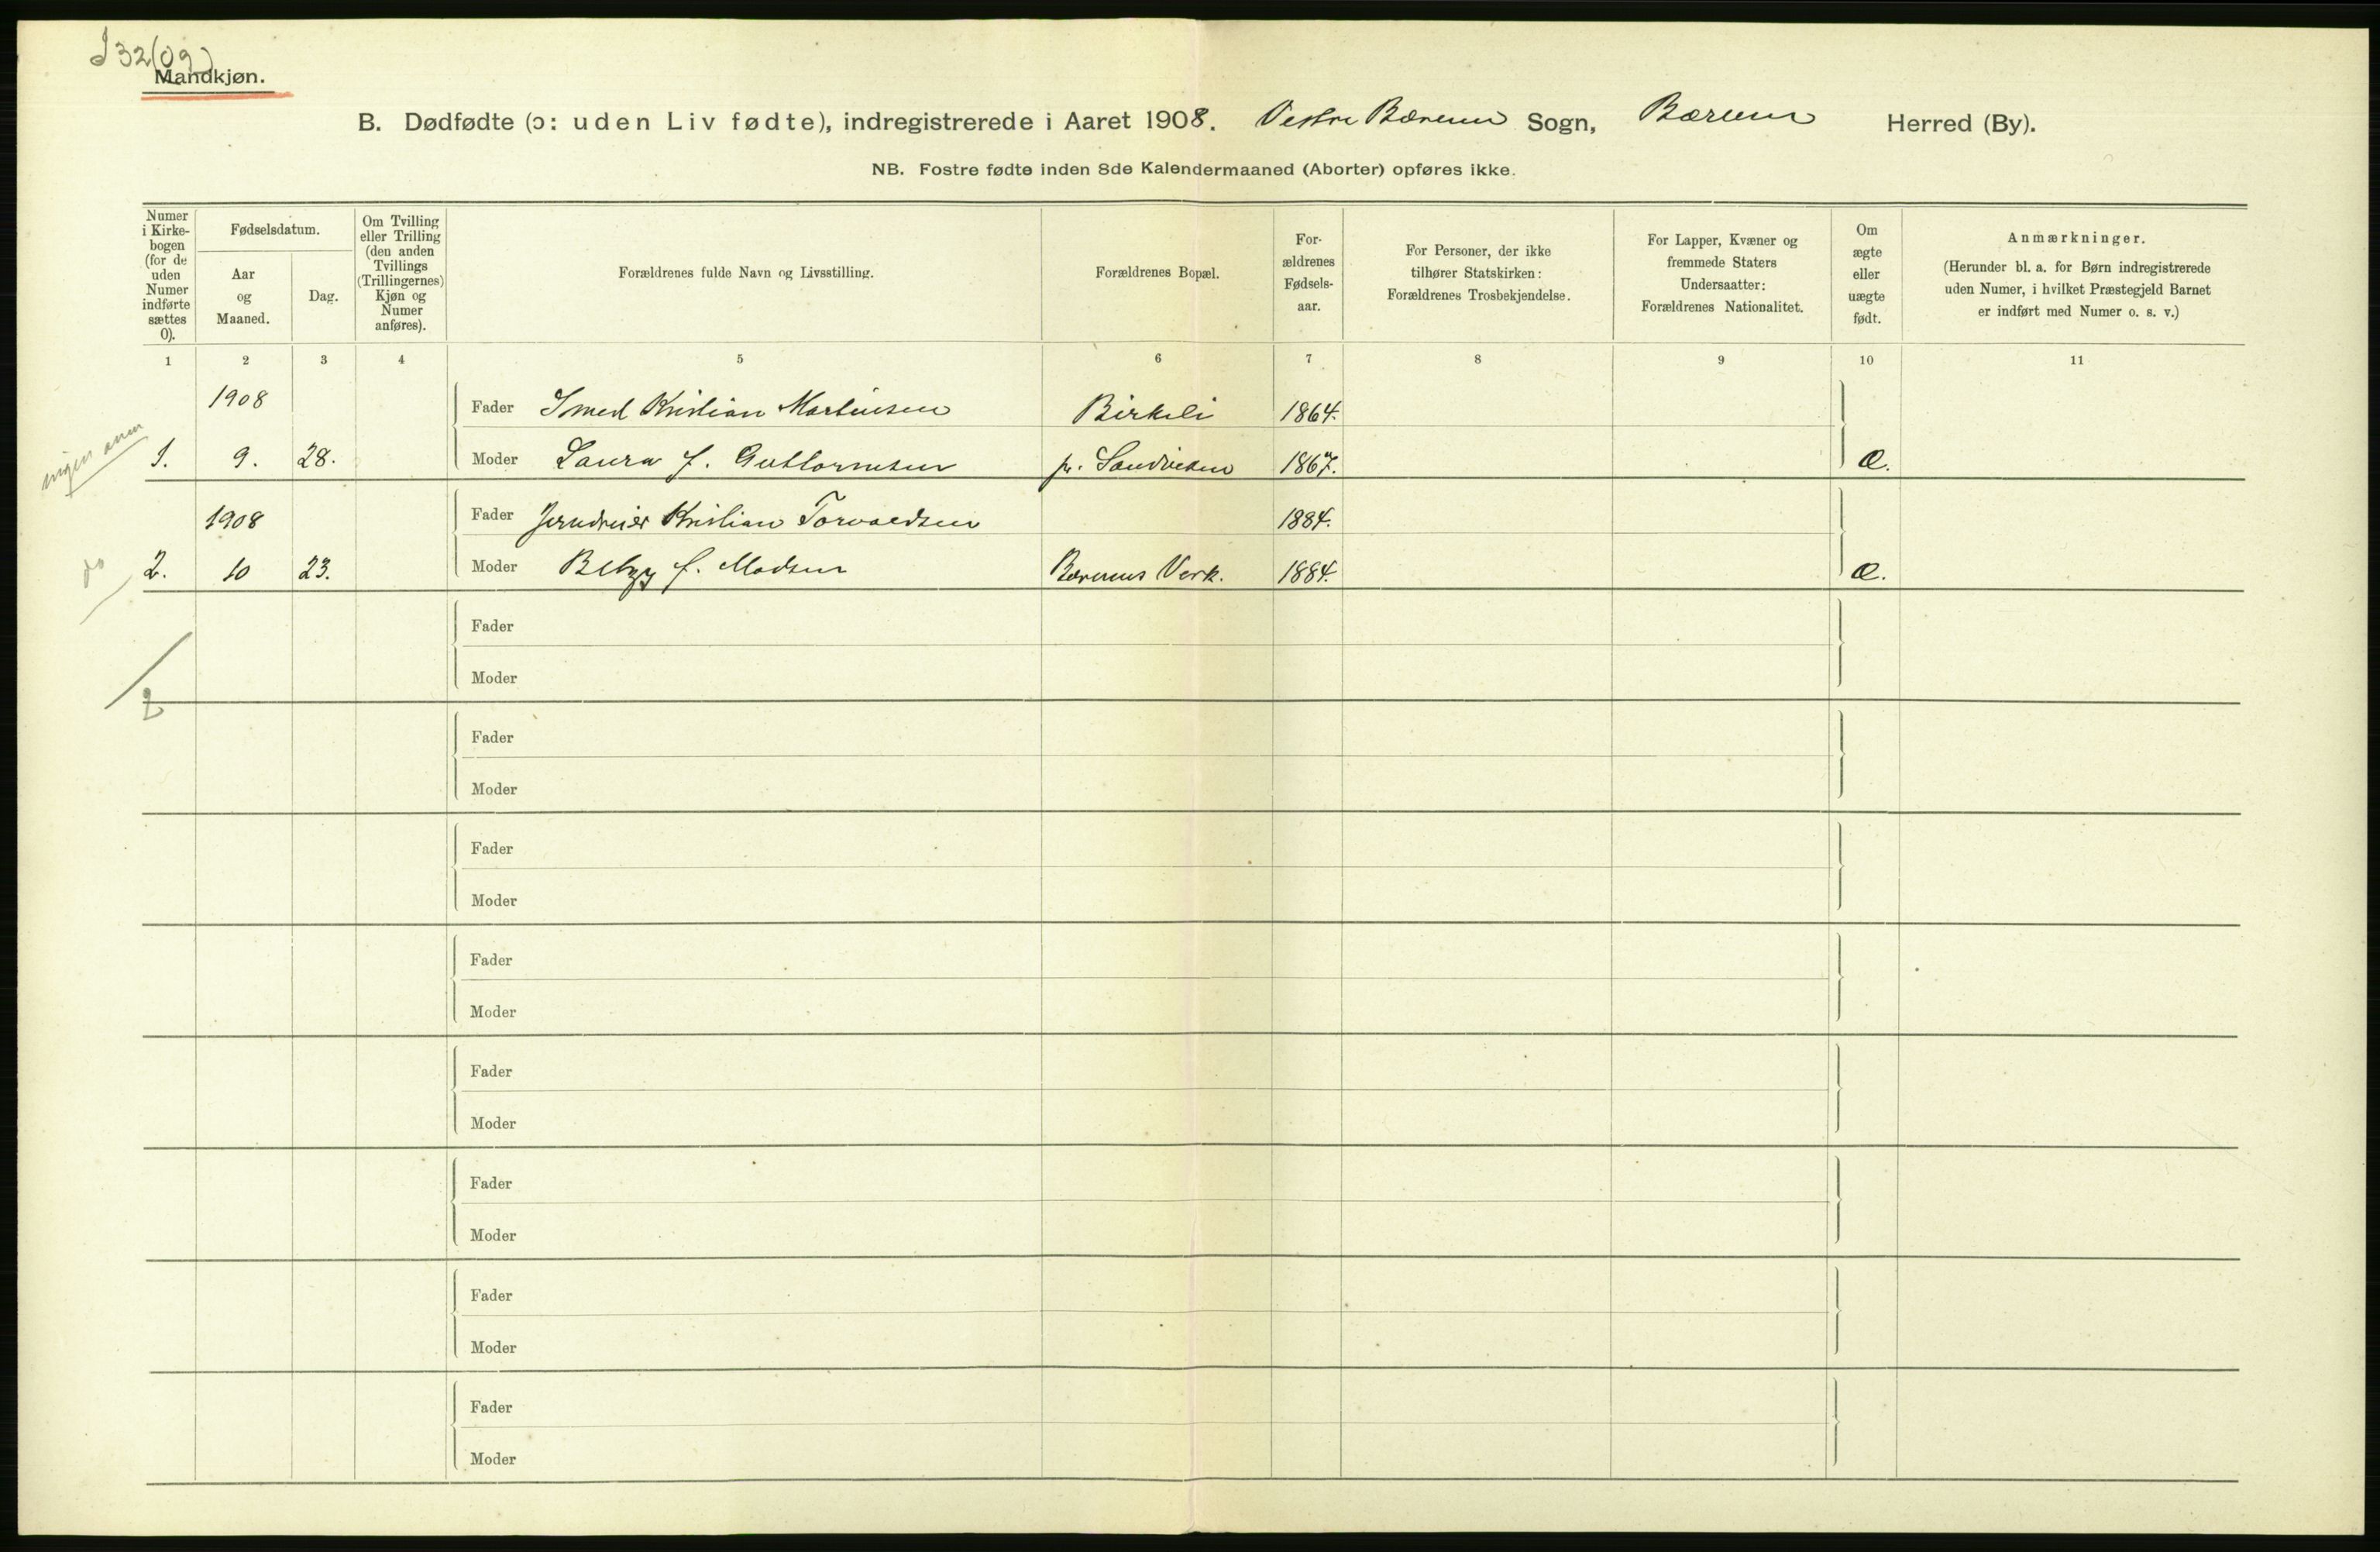 J 32(09)
Mandkjøn.
B. Dødfødte (ɔ: uden Liv fødte), indregistrerede i Aaret 1908. Vestre Bærum Sogn, Bærum Herred (By).
NB. Fostre fødte inden 8de Kalendermaaned (Aborter) opføres ikke.
Numer
i Kirke-
bogen
(for de
uden
Numer
indførte
sættes
0).
Fødselsdatum.
Aar
og
Maaned.
Dag.
Om Tvilling
eller Trilling
(den anden
Tvillings
(Trillingernes)
Kjøn og
Numer
anføres).
Forældrenes fulde Navn og Livsstilling.
Forældrenes Bopæl.
For-
ældrenes
Fødsels-
aar.
For Personer, der ikke
tilhører Statskirken:
Forældrenes Trosbekjendelse.
For Lapper, Kvæner og
fremmede Staters
Undersaatter:
Forældrenes Nationalitet.
Om
ægte
eller
uægte
født.
Anmærkninger.
(Herunder bl. a. for Børn indregistrerede
uden Numer, i hvilket Præstegjeld Barnet
er indført med Numer o. s. v.)
1 2 3 4 5 6 7 8 9 10 11
1908 Fader Smed Kristian Martinsen Birkeli 1864.
ingen anm 1. 9. 28. Moder Laura f. Guttormsen pr. Sandviken 1867. Æ.
1908 Fader Jerndreier Kristian Torvaldsen 1884.
do 2. 10 23. Moder Betzy f. Madsen Bærums Verk. 1884. Æ.
Fader
Moder
2
Fader
Moder
Fader
Moder
Fader
Moder
Fader
Moder
Fader
Moder
Fader
Moder
Fader
Moder